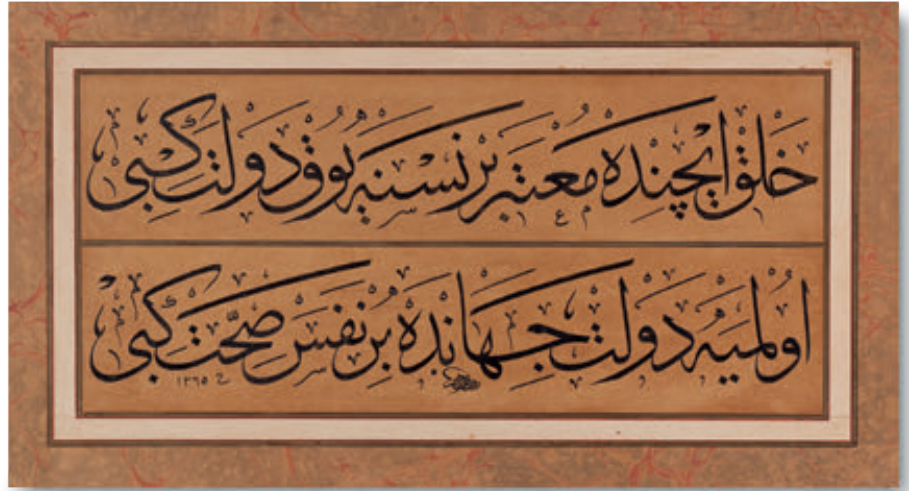 خَلْق اِيچِنْدَه مُعْتَبَر بِر نَسْنَه يُوق دَوْلَتْ كِبِى
اُولْمَيَه دَوْلَتْ جِهَانْدَه بِر نَفَس صِحَّتْ كِبِى
١٢٦٥